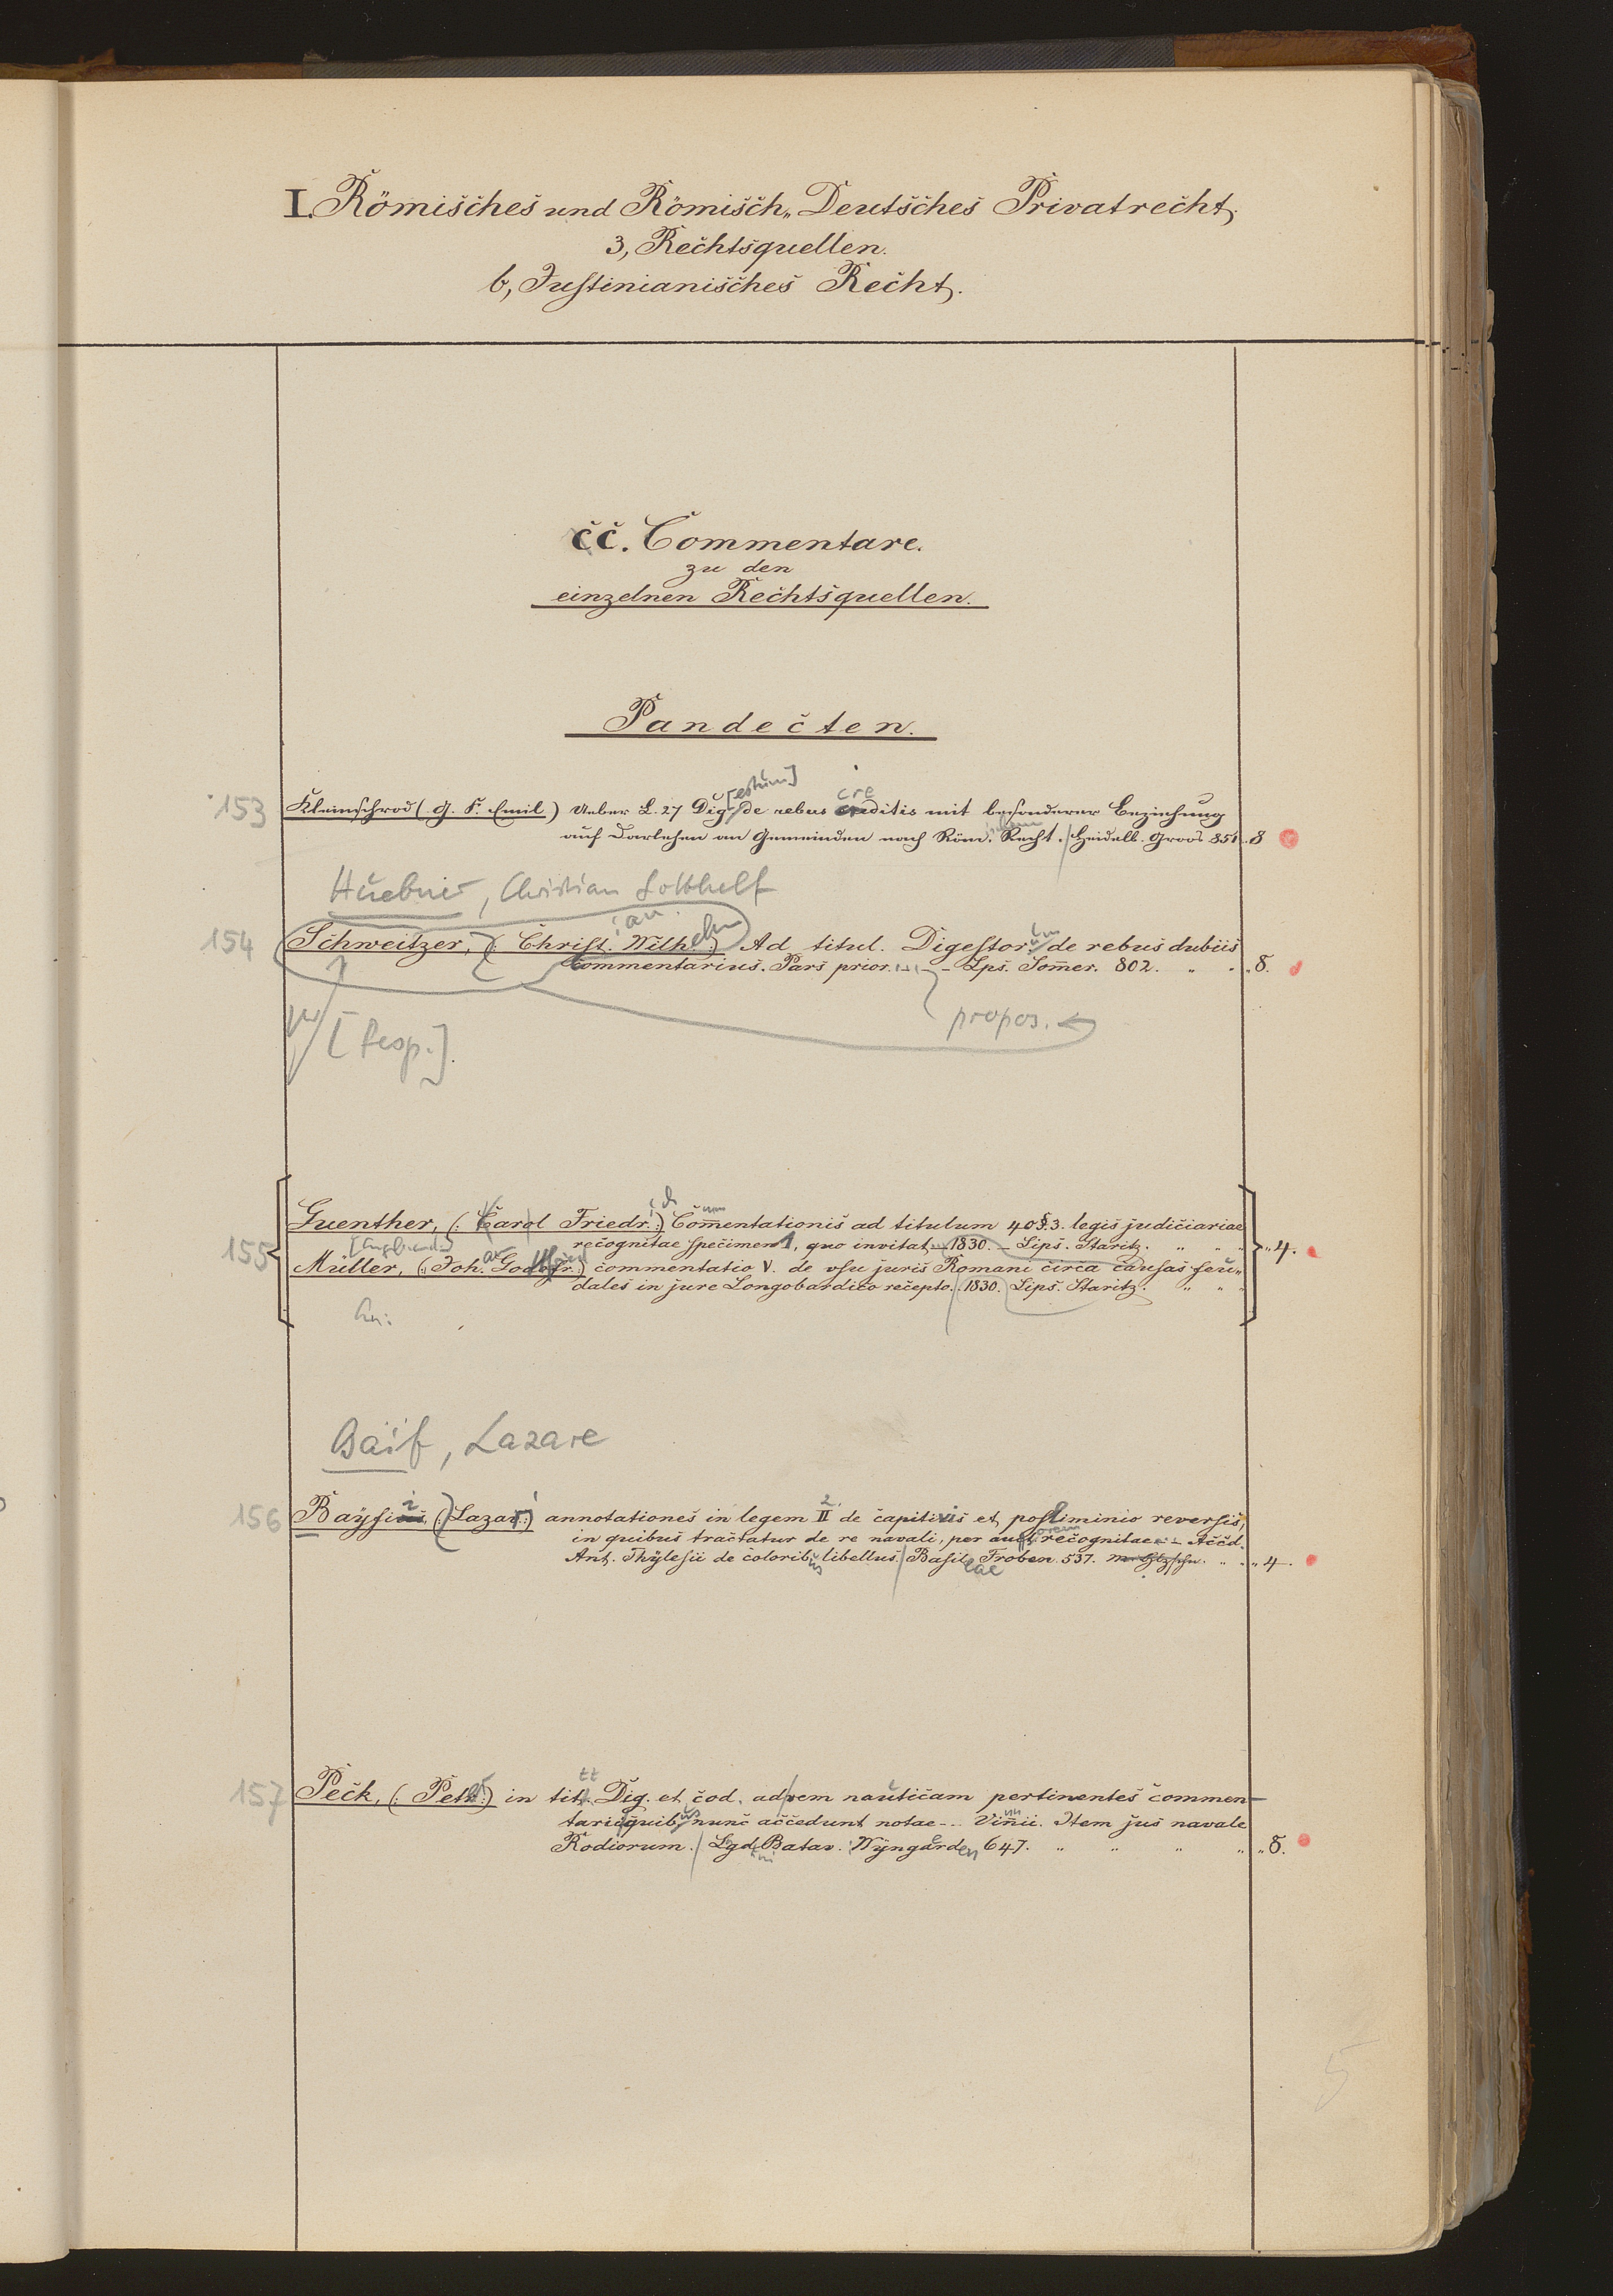 I. Römisches und Römisch„ Deutsches Privatrecht.
3, Rechtsquellen.
b, Justinianisches Recht.
cc. Commentare.
zu den
einzelnen Rechtsquellen.
Pandecten.
[estum] cre
153 Kleinschrod ( G. F. Emil ) Ueber L. 27 Dig. de rebus creditis mit besonderer Beziehung
auf Darlehen an Gemeinden nach Röm. Recht. Heidelb. Groos 851. 8
Huebner, Christian Gotthelf
ian
154 Schweitzer, (: Christ. Wilhelm :) Ad titul. Digestor. um de rebus dubiis
Commentarius. Pars prior. ... – Lps. Somer. 802. „ „ „ 8.
propos.
[Resp.].
155 Guenther, (: Carol Friedr. :) Com̄entationis ad titulum 40 §. 3. legis judiciariae
recognitae specimen 1, quo invitat – 1830. – Lips. Staritz. „ „ „ „ 4.
Müller, (: Joh. Godofr. :) commentatio V. de vsu juris Romani circa causas feu„
dales in jure Longobardico recepto. 1830. Lips. Staritz. „ „ „
Baïf, Lazare
156 Baysi (: Lazari :) annotationes in legem II 2. de captivis et postliminio reversis,
in quibus tractatur de re navali, per aut orem recognitae – Accd.
Ant. Thylesii de colorib us libellus. Basil eae Froben. 537. „ „ „ 4.
tt
157 Peck, (: Petr. :) in tit. Dig. et cod. ad rem nauticam pertinentes commen–
tarii quib us nunc accedunt notae –.. Vin̄ii. Item jus navale
Rodiorum. Lgd. Batav. Wyngärden 647. „ „ „ „ „ 8.
5